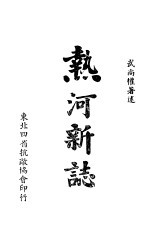 武尚權著述
熱河新誌
東北四省抗敵協會印行